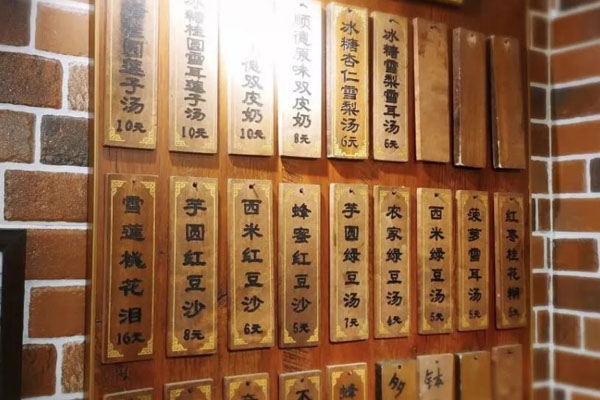 圆莲子汤
10元
冰糖桂圆雪耳莲子汤
10元
双皮奶
10元
顺德原味双皮奶
8元
冰糖杏仁雪梨汤
6元
冰糖雪梨雪耳汤
6元
雪莲桃花泪
16元
芋圆红豆沙
8元
西米红豆沙
6元
蜂蜜红豆沙
5元
芋圆绿豆汤
7元
农家绿豆汤
4元
西米绿豆汤
5元
菠萝雪耳汤
5元
红枣桂花糊
5元
多
钵